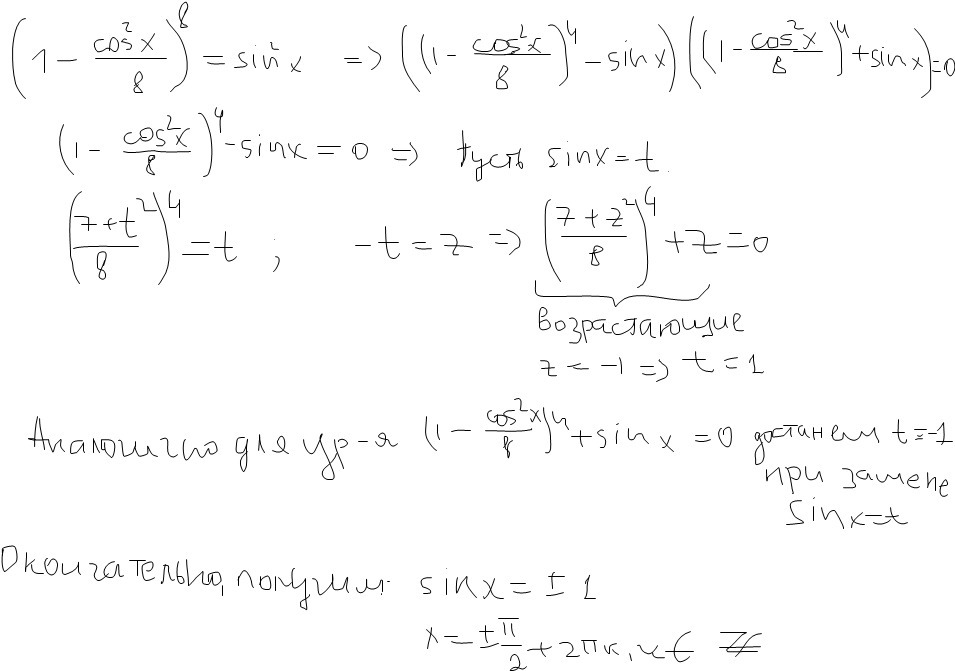 (1 - cos²x/8)⁸ = sin²x => ((1 - cos²x/8)⁴ - sin x)((1 - cos²x/8)⁴ + sin x) = 0
(1 - cos²x/8)⁴ - sin x = 0 => пусть sin x = t.
((7 + t²)/8)⁴ = t ; -t = z => ((7 + z²)/8)⁴ + z = 0
возрастающие
z = -1 => t = 1
Аналогично для ур-я (1 - cos²x/8)⁴ + sin x = 0 достанем t = -1
при замене
sin x = t
Окончательно, получим: sin x = ± 1
x = ± π/2 + 2πк, к ∈ Z